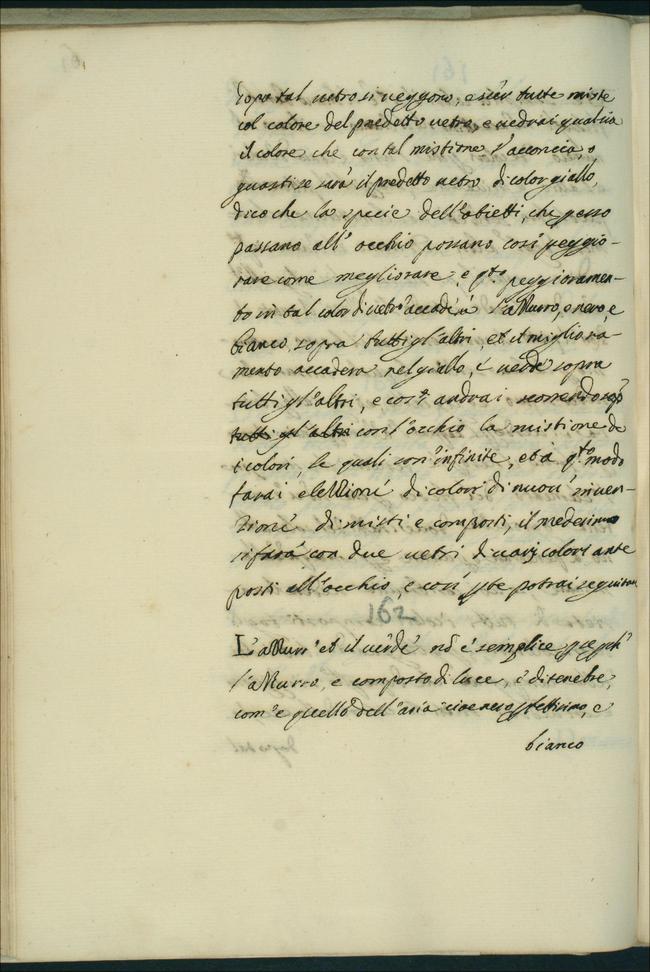 dopo tal uetro si ueggono, e sien tutte miste
col colore del predetto uetro, e uedrai qual sia
il colore che con tal mistione s'acconcia, o
guasti se sarà il predetto uetro di color giallo,
dico che la specie dell'obietti, che per esso
passano all'occhio possano così peggio-
rare come megliorare, e qto peggioramen-
to in tal color di uetro accaderà l'azzurro, e nero, e
bianco, sopra tutti gl'altri, et il migliora-
mento accaderà nel giallo, e uerde sopra
tutti gl'altri, e così andrai scorrendo
tutti gl'altri con l'occhio la mistione de
i colori, le quali son'infinite, et à qto modo
farai elezzione di colori di nuoue inuen-
zioni di misti e composti, il medesimo
si farà con due uetri di uarij colori ante
posti all'occhio, e così p te potrai seguitare
162
L'azzurro et il uerde nō è semplice p se pche
l'azzurro, è composto di luce, e di tenebre,
com'è quello dell'aria cioè nero pfettissimo, e
bianco